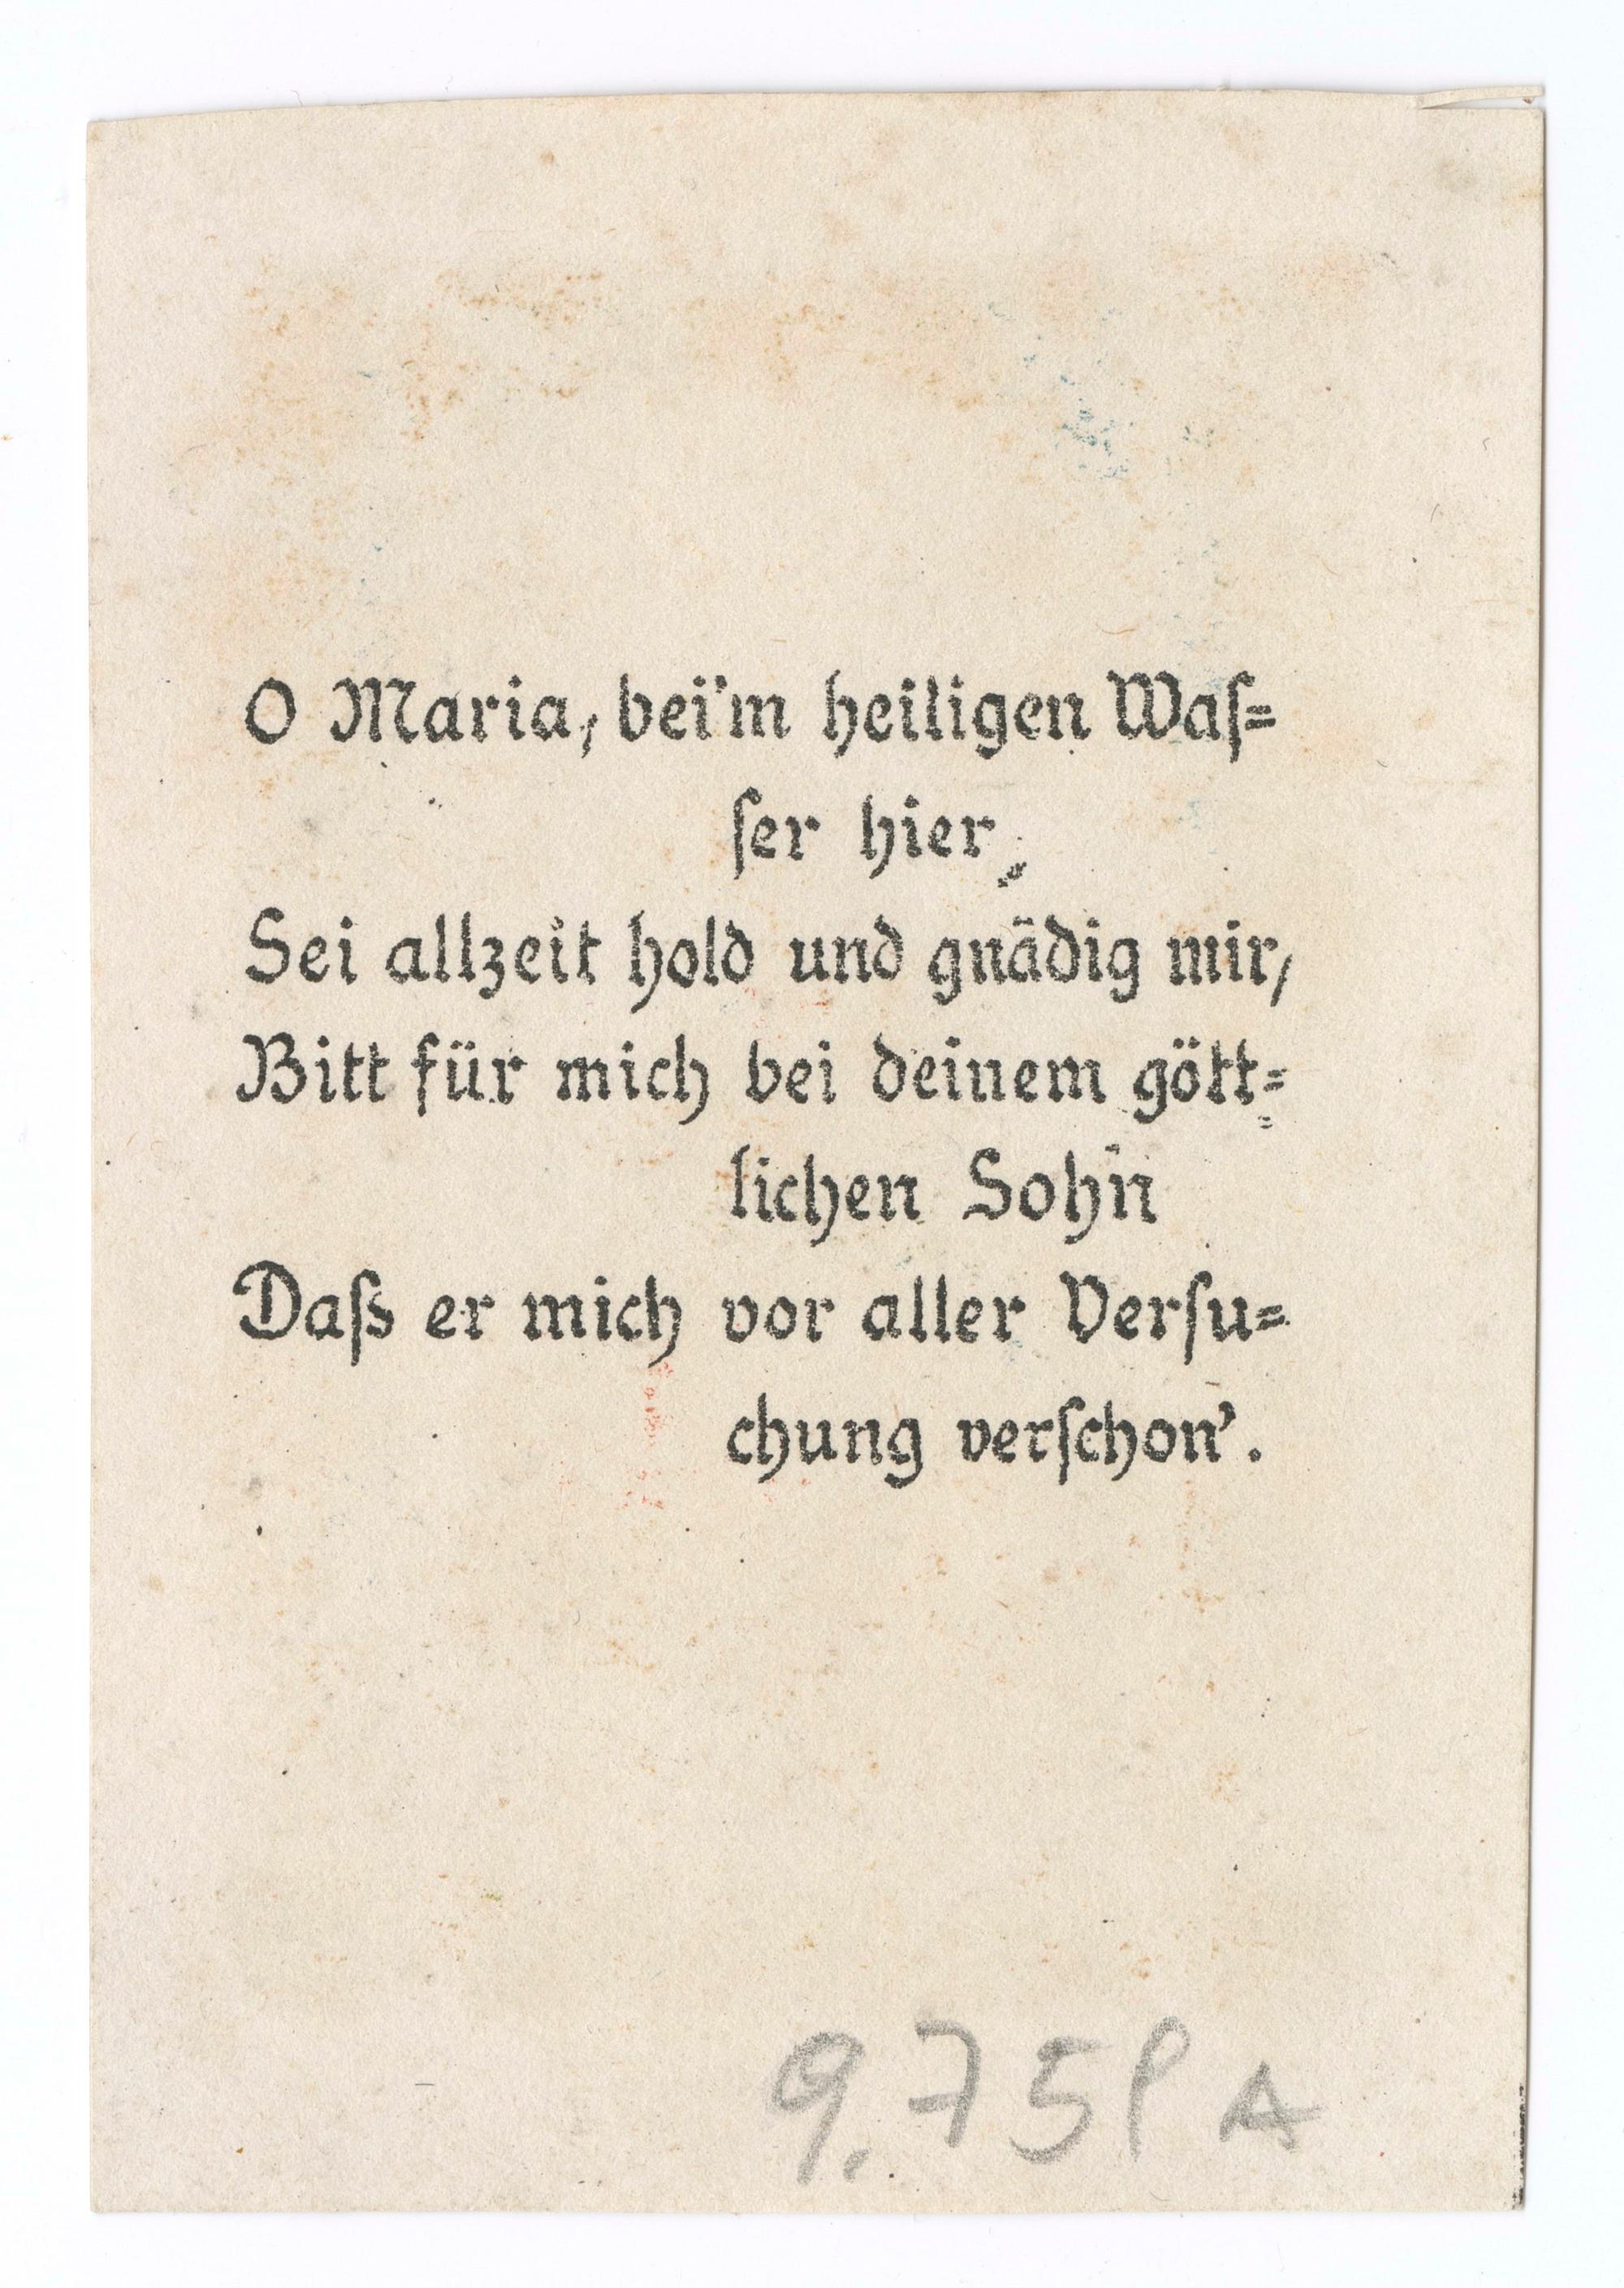 O Maria, bei'm heiligen Waſ=
ſer hier,
Sei allzeit hold und gnädig mir,
Bitt für mich bei deinem gött=
lichen Sohn
Daß er mich vor aller Verſu=
chung verſchon'.
9.75 P A